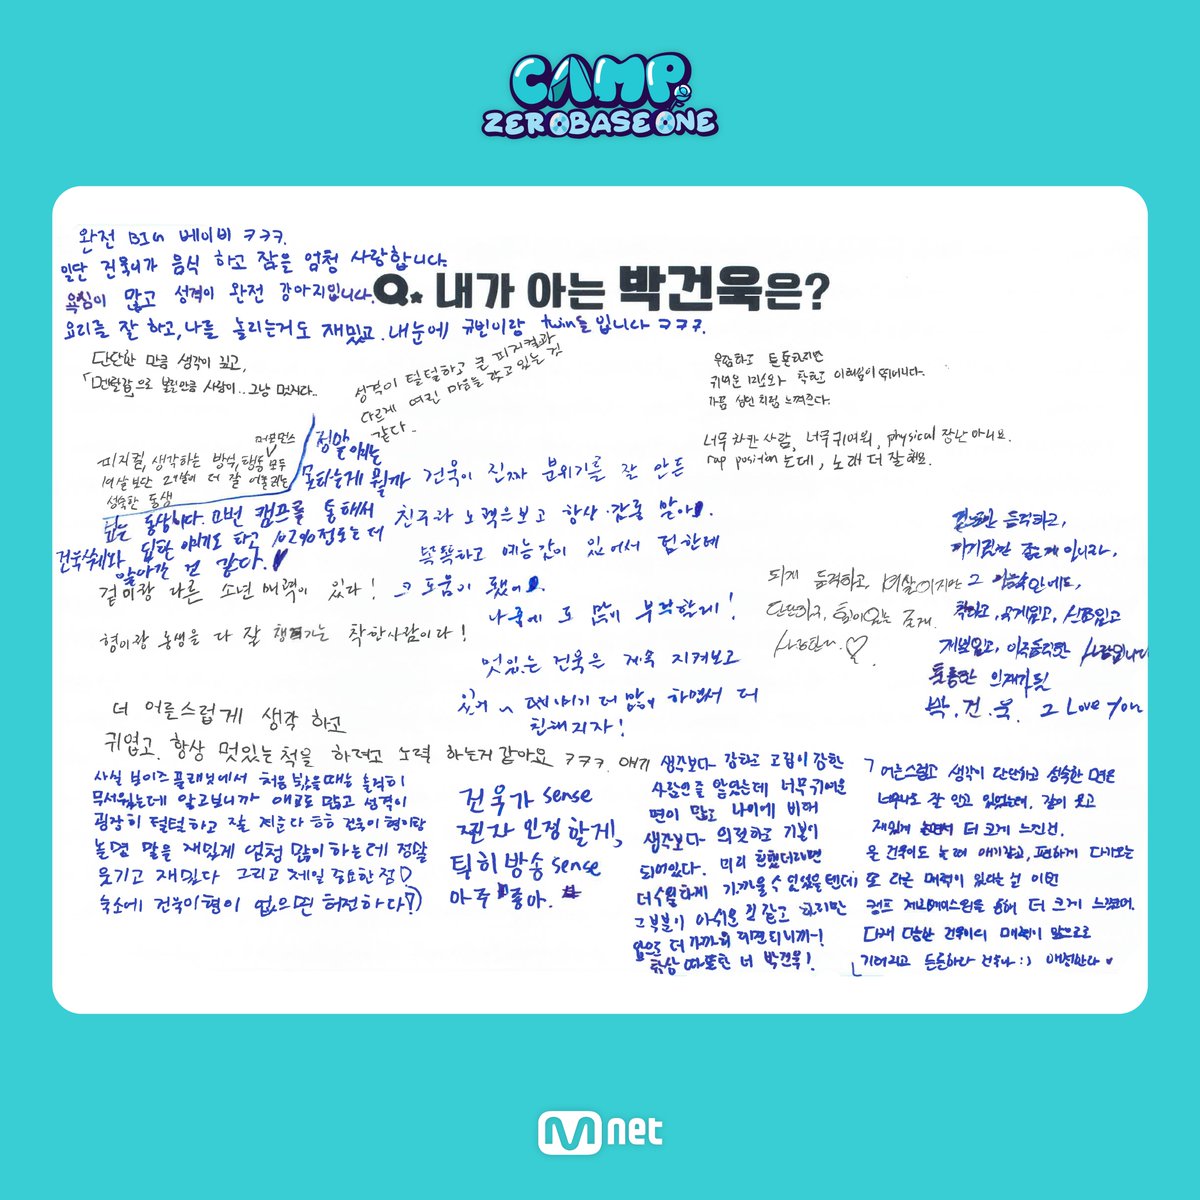 CAMP
ZEROBASEONE
Q. 내가 아는 박건욱은?
완전 BIG 베이비 ㅋㅋㅋ.
일단 건욱이가 음식 하고 잠을 엄청 사랑합니다.
욕심이 많고 성격이 완전 강아지입니다.
요리를 잘 하고, 나를 놀리는거도 재밌고. 내 눈에 규빈이랑 twin들 입니다 ㅋㅋㅋ.
단단한 만큼 생각이 깊고,
그냥 멋지다..
성격이 털털하고 큰 피지컬과
다르게 여린 마음을 갖고 있는 것
같다.
귀여운 미소와 착한
가끔 성인처럼 느껴진다.
너무 착한 사람, 너무 귀여워, physical 장난 아니요.
rap position는데, 노래 더 잘해요.
퍼포먼스
피지컬, 생각하는 방식, 행동 모두
19살 보단 29살이 더 잘 어울리는
성숙한 동생
정말
건욱이 진짜 분위기를 잘 만든
친구라 노력으보고 항상 감동 받아.
똑똑하고 예능감이 있어서 텀한테
도움이 됐어.
나중에도 많이 부탁할게!
동생이다. 이번 캠프를 통해서
이야기도 하고 102%정도는 더
알아간 것 같다.
겉이랑 다른 소년 매력이 있다!
형이랑 동생을 다 잘 챙기는 착한사람이다!
멋있는 건욱은 계속 지켜보고
있어 ~ 더 많이 하면서 더
친해지자!
되게 듬직하고, 19살이지만
단단하고,
듬직하고,
그
착하고,
재밌고, 아주 듬직한 사람입니다
박.건.욱. I Love You
더 어른스럽게 생각 하고
귀엽고. 항상 멋있는 척을 하려고 노력 하는거 같아요 ㅋㅋㅋ. 애기
사실 보이즈 플래닛에서 처음 봤을때는 솔직히
무서웠는데 알고보니까 애교도 많고 성격이
굉장히 털털하고 잘 지준다 ㅎㅎ 건욱이 형이랑
놀면 말을 재밌게 엄청 많이 하는데 정말
웃기고 재밌다 그리고 제일 중요한 점♡
숙소에 건욱이형이 없으면 허전하다?)
건욱가 sense
진짜 인정할게,
특히 방송 sense
아주 좋아.
생각보다 강하고 고집이 강한
사람인줄 알았는데 너무 귀여운
면이 많고 나이에 비해
생각보다 의젓하고 기본이
되어있다. 미리 친했더라면
더 수월하게 가까울 수 있었을텐데
그 부분이 아쉬운 것 같고 하지만
앞으로 더 가까워 지면 되니까~!
항상 따뜻한 너 박건욱!
어른스럽고 생각이 단단하고 성숙한 면은
너무나도 잘 알고 있었는데, 같이 웃고
재밌게 놀면서 더 크게 느낀건.
온 건욱이도 놀 때 애기같고, 편하게 다가오는
또 다른 매력이 있다는 건 이번
캠프 제로베이스원을 통해 더 크게 느꼈어.
다재 다능한 건욱이의 매력이 앞으로도
기대되고 든든하다 건욱아 :) 애정한다 ♥
Mnet